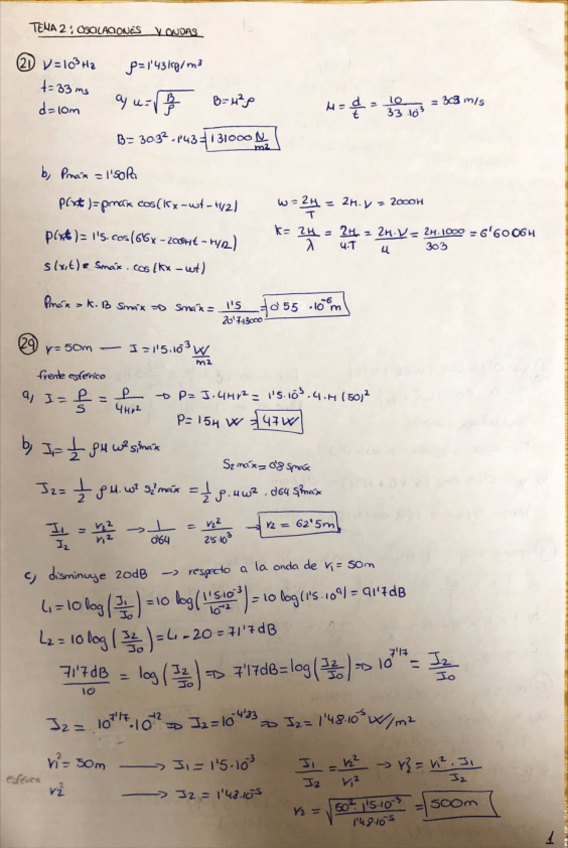 TEMA 2: OSCILACIONES Y ONDAS
21 ν=10³Hz ρ=1'43kg/m³
t=33 ms
d=10m a) u=√(B/ρ) B=u²ρ u = d/t = 10/33·10³ = 303 m/s
B= 303²·1'43= 131000 N/m²
b) Pmáx = 1'50Pa
P(xt)=pmáx cos(Kx-wt-π/2) w=2π/T = 2π·ν = 2000π
P(xt)=1'5·cos(6'6x-2000πt-π/2) K=2π/λ = 2π/u·T = 2π·ν/u = 2π·1000/303 = 6'6006π
s(x,t)= smáx·cos(Kx-wt)
Pmáx = K·B smáx => smáx= 1'5/20'7·13000 = 0'55·10⁻⁶m
29 r=50m — I=1'5·10³ W/m²
frente esférico
a) I = P/S = P/4πr² → P=I·4πr²= 1'5·10³·4·π(50)²
P=15π W = 47W
b) I₁=1/2 ρu w² s₁²máx
S₂máx=0'8 s₁máx
I₂= 1/2 ρu·w² s₂²máx = 1/2 ρ·uw²·0'64 s₁²máx
I₁/I₂ = r₂²/r₁² → 1/0'64 = r₂²/25·10³ → r₂ = 62'5m
c) disminuye 20dB → respecto a la onda de r₁=50m
L₁=10log(I₁/I₀)=10 log(1'5·10⁻³/10⁻¹²)=10log(1'5·10⁹)=91'7dB
L₂=10log(I₂/I₀)=L₁-20=71'7dB
71'7dB/10 = log(I₂/I₀) => 7'17dB=log(I₂/I₀) => 10^7'17 = I₂/I₀
I₂= 10^7'17·10⁻¹² => I₂=10^-4'83 => I₂=1'48·10⁻⁵ W/m²
r₁²=50m → I₁=1'5·10⁻³ I₁/I₂ = r₂²/r₁² → r₂²= r₁²·I₁/I₂
esférico
r₂² → I₂=1'48·10⁻⁵ r₂=√(50²·1'5·10⁻³/1'48·10⁻⁵) = 500m
1